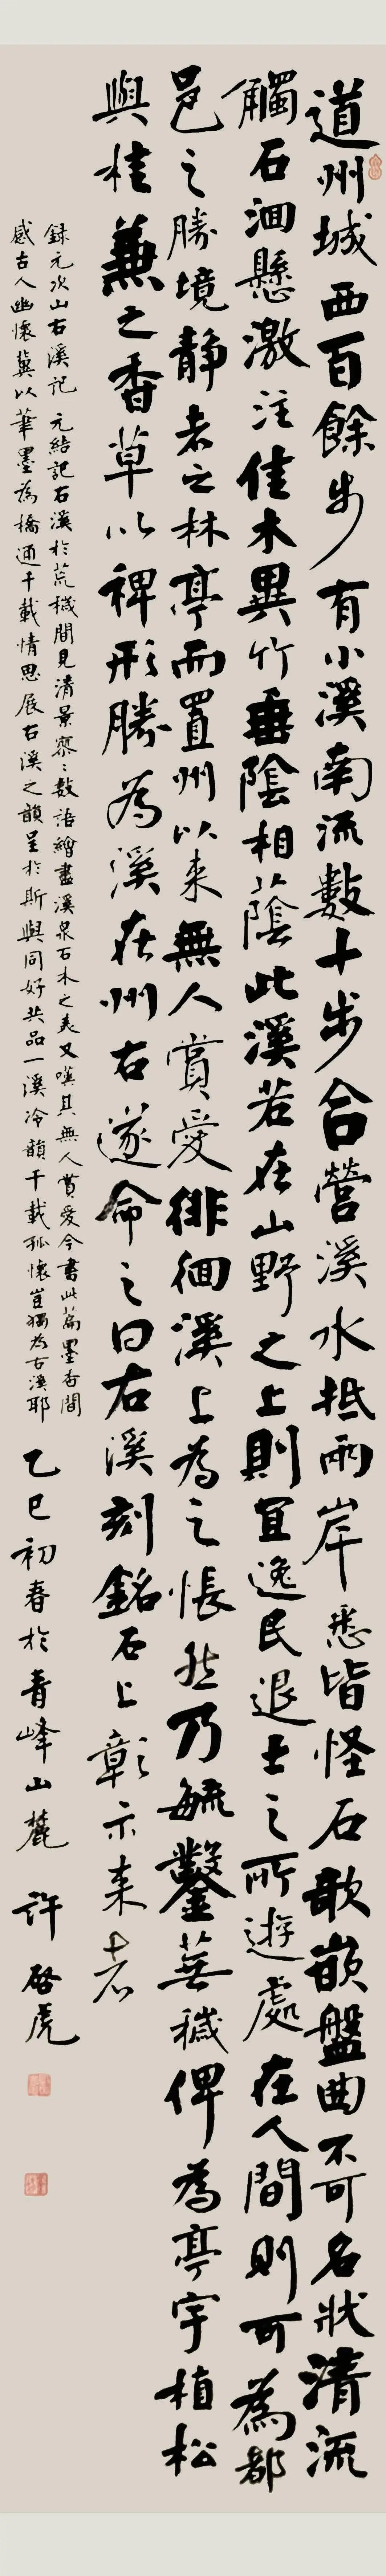 道州城西百餘步有小溪南流數十步合營溪水抵兩岸悉皆怪石欹嵌盤曲不可名狀清流
觸石洄懸激注佳木異竹垂陰相蔭此溪若在山野之上則宜逸民退士之所遊處在人間則可為都
邑之勝境靜者之林亭而置州以來無人賞愛徘徊溪上為之悵然乃疏鑿蕪穢俾為亭宇植松
與桂兼之香草以裨形勝為溪在州右遂命之曰右溪刻銘石上彰示來者
錄元次山右溪記 元結記右溪於荒穢間見清景寥〻數語繪盡溪泉石木之美又嘆其無人賞愛今書此篇墨香間
感古人幽懷冀以筆墨為橋通千載情思展右溪之韻呈於斯與同好共品一溪冷韻千載孤懷豈獨為右溪耶 乙巳初春於青峰山麓 許啓虎